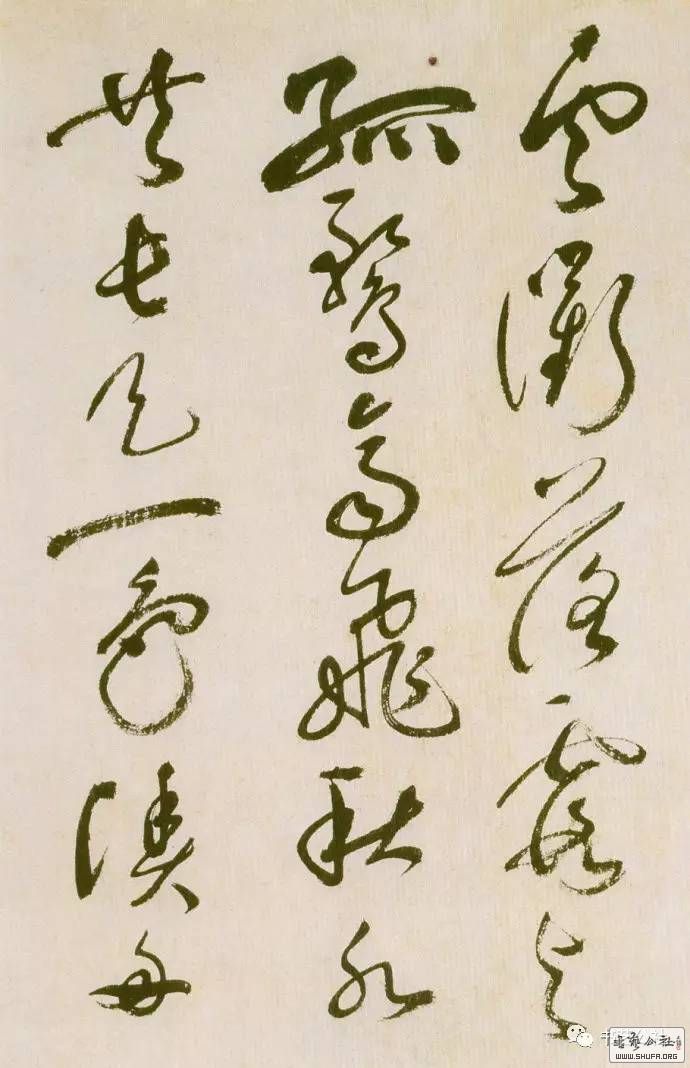 雲衢落霞與
孤鶩齊飛秋水
共長天一色漁舟
書藝公社
WWW.SHUFA.ORG